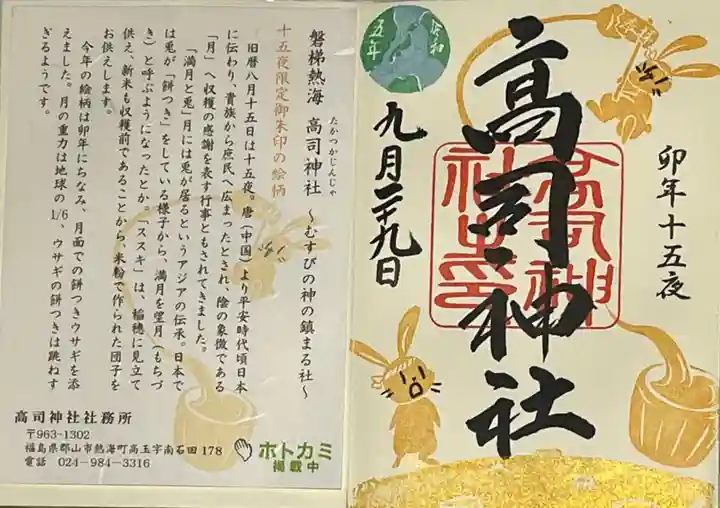 磐梯熱海 高司神社 ～むすびの神の鎮まる社～
たかつかじんじゃ
十五夜限定御朱印の絵柄
旧暦八月十五日は十五夜。唐（中国）より平安時代頃日本
に伝わり、貴族から庶民へ広まったとされ、陰の象徴である
「月」へ収穫の感謝を表す行事ともされてきました。
「満月と兎」月には兎が居るというアジアの伝承。日本で
は兎が「餅つき」をしている様子から、満月を望月（もちづ
き）と呼ぶようになったとか。「ススキ」は、稲穂に見立て
お供え、新米も収穫前であることから、米粉で作られた団子を
お供えします。
今年の絵柄は卯年にちなみ、月面での餅つきウサギを添
えました。月の重力は地球の1/6、ウサギの餅つきは跳ねす
ぎるようです。
高司神社社務所
〒963-1302
福島県郡山市熱海町高玉字南石田178
電話 024-984-3316
ホトカミ
掲載中
卯年十五夜
奉拝
高司神社
高司神
社之印
令和
五年
九月二十九日